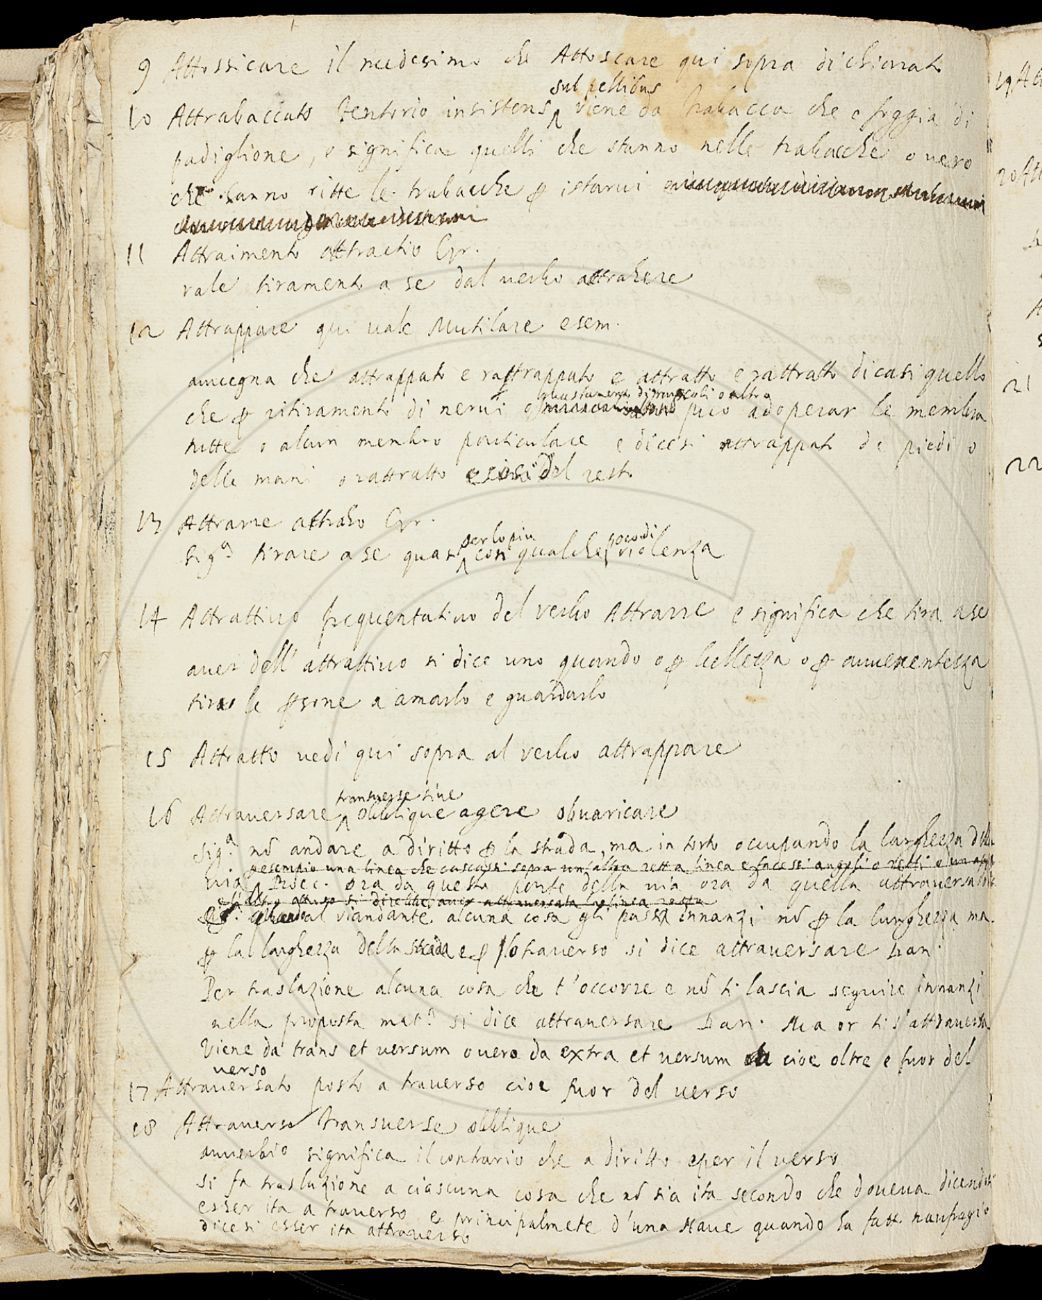 9 Attossicare il medesimo che Attoscare qui sopra dichiarat
sub pellibus
10 Attrabaccato tentorio insistens viene da trabacca che e foggia di
padiglione, e significa quelli che stanno nelle trabacche overo
che fanno ritte le trabacche ꝑ istarui
11 Attraimento attractio Cyr.
vale tiramento a se dal verbo attrahere
12 Attrappare qui vale Mutilare esem.
auuegna che attrappato e rattrappato e attratto e rattratto dicasi quello
guastamento di muscoli o altro
che ꝑ ritiramento di nerui o può adoperar le membra
tutte o alcun membro particulare e dicesi attrappato de piedi o
delle mani o rattratto e cosi del resto
13 Attrarre attraho Cyr.
per lo più poco di
Sigª tirare a se quasi con qualche violenza
14 Attrattiuo frequentatiuo del verbo Attrarre e significa che tira a se
auer dell' attrattiuo si dice uno quando o ꝑ bellezza o ꝑ auuenentezza
tira le ꝑsone a amarlo e guardarlo
15 Attratto uedi qui sopra al verbo attrappare
transverse sive
16 Attrauersare oblique agere obuaricare
Sigª nō andare a diritto ꝑ la strada, ma in torto occupando la larghezza della
pesempio una linea che cascassi sopra un'altra retta linea e facessi angoli o retti o
via Bocc. ora da questa ponte della via ora da quella attrauersa
si direbbe auer attrauersata la linea retta
Quando al viandante alcuna cosa gli passa innanzi nō ꝑ la lunghezza ma
ꝑ la larghezza della strada e ꝑ lo trauerso si dice attrauersare Dan.
Per traslazione alcuna cosa che t'occorre e nō ti lascia seguire innanzi
nella proposta matª si dice attrauersare Dan. Ma or ti s'attrauersa
Viene da trans et versum ouero da extra et versum cioe oltre e fuor del
verso
17 Attrauersato posto a trauerso cioe fuor del verso
18 Attrauerso transuerse oblique
auuerbio significa il contrario che a diritto e per il verso
si fa traslazione a ciascuna cosa che nō sia ita secondo che doueua dicendosi
esser ita a trauerso e principalmēte d'una Naue quando ha fatto naufragio
dicesi esser ita attrauerso